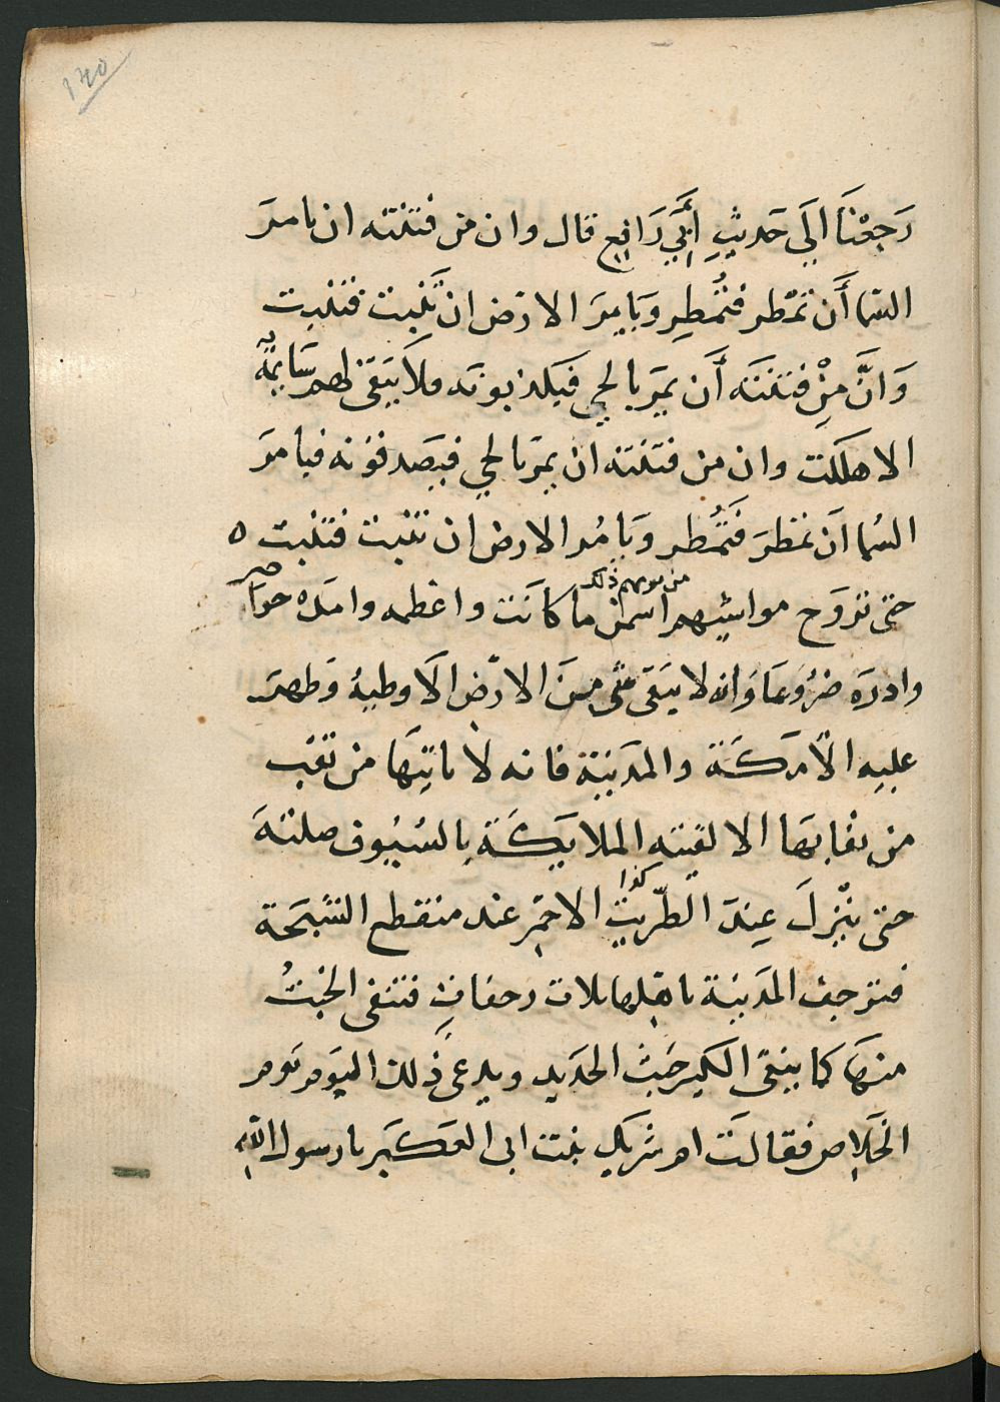 ١٢٥
رَجَعْنَا اِلَي حَديثِ أَبَي رَافِعٍ قال وان من فتنته ان يامرَ
السّما أَن تمْطر فتُمطِر وَيَامِرَ الارض ان تَنْبت فتنبت
وَانَّ مِنْ فتنته أَن يمَر بالحي فيَكذبونَه فلاَ يَبَقى لهم سَايمةٌ
الا هلكت وان من فتنته ان يمرَ بالحي فيَصَدقونه فيامرَ
السّما اَن تمَطرَ فَتُمطر وَيامُر الارض ان تنبت فتنبت ٥
حتى تروَح مواشيهم من يومهم ذلك اسمن ما كانَت واعظمه وامَده خواصر
وادرَه ضرُوعَا وَانه لا يَبَقى شي مِنَ الارَض الاَ وطيهُ وَظهرَ
عليِه الا مَكَة والمدَينة فانه لا ياتيهَا من نقب
من نقابهَا الا لقيته الملايَكَة بالسُيوف صلتهَ
حتى ينْزلَ عِندَ الظّريبُ كذا الاحمَر عند منقطع السَبَخة
فترجف المدَينة باهلها ثلاث رجفات فتنفى الخبثُ
منهَا كما ينفَى الكير خبَث الحدَيد ويدعى ذَلك اليَوم يَوم
الخَلاص فقالَت ام شريك بنت ابى العَكَر يا رسول الله